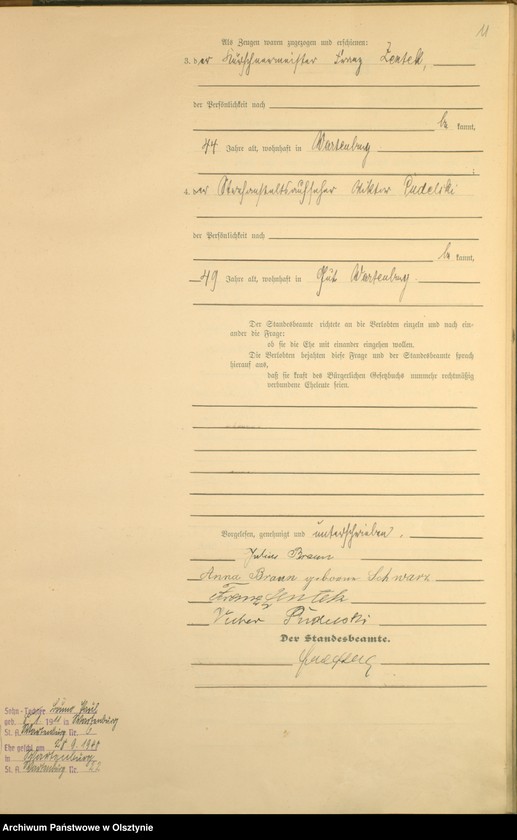 11
Als Zeugen waren zugezogen und erschienen:
3. der Kürschnermeister Franz Zentek,
der Persönlichkeit nach
be kannt,
44 Jahre alt, wohnhaft in Wartenburg
;
4. der Strafanstaltsaufseher Viktor Pudelski
der Persönlichkeit nach
be kannt,
49 Jahre alt, wohnhaft in Gut Wartenburg.
Der Standesbeamte richtete an die Verlobten einzeln und nach ein-
ander die Frage:
ob sie die Ehe mit einander eingehen wollen.
Die Verlobten bejahten diese Frage und der Standesbeamte sprach
hierauf aus,
daß sie kraft des Bürgerlichen Gesetzbuchs nunmehr rechtmäßig
verbundene Eheleute seien.
Vorgelesen, genehmigt und unterschrieben.
Julius Braun
Anna Braun geborene Schwarz
Franz Zentek
Victor Pudelski
Der Standesbeamte.
Sohn-Tochter Bruno Paul
geb. 1911 in Wartenburg
St. A. Wartenburg Nr.
Ehe geschl am 28.9.1940
in
St. A. Wartenburg Nr. 22
Archiwum Państwowe w Olsztynie